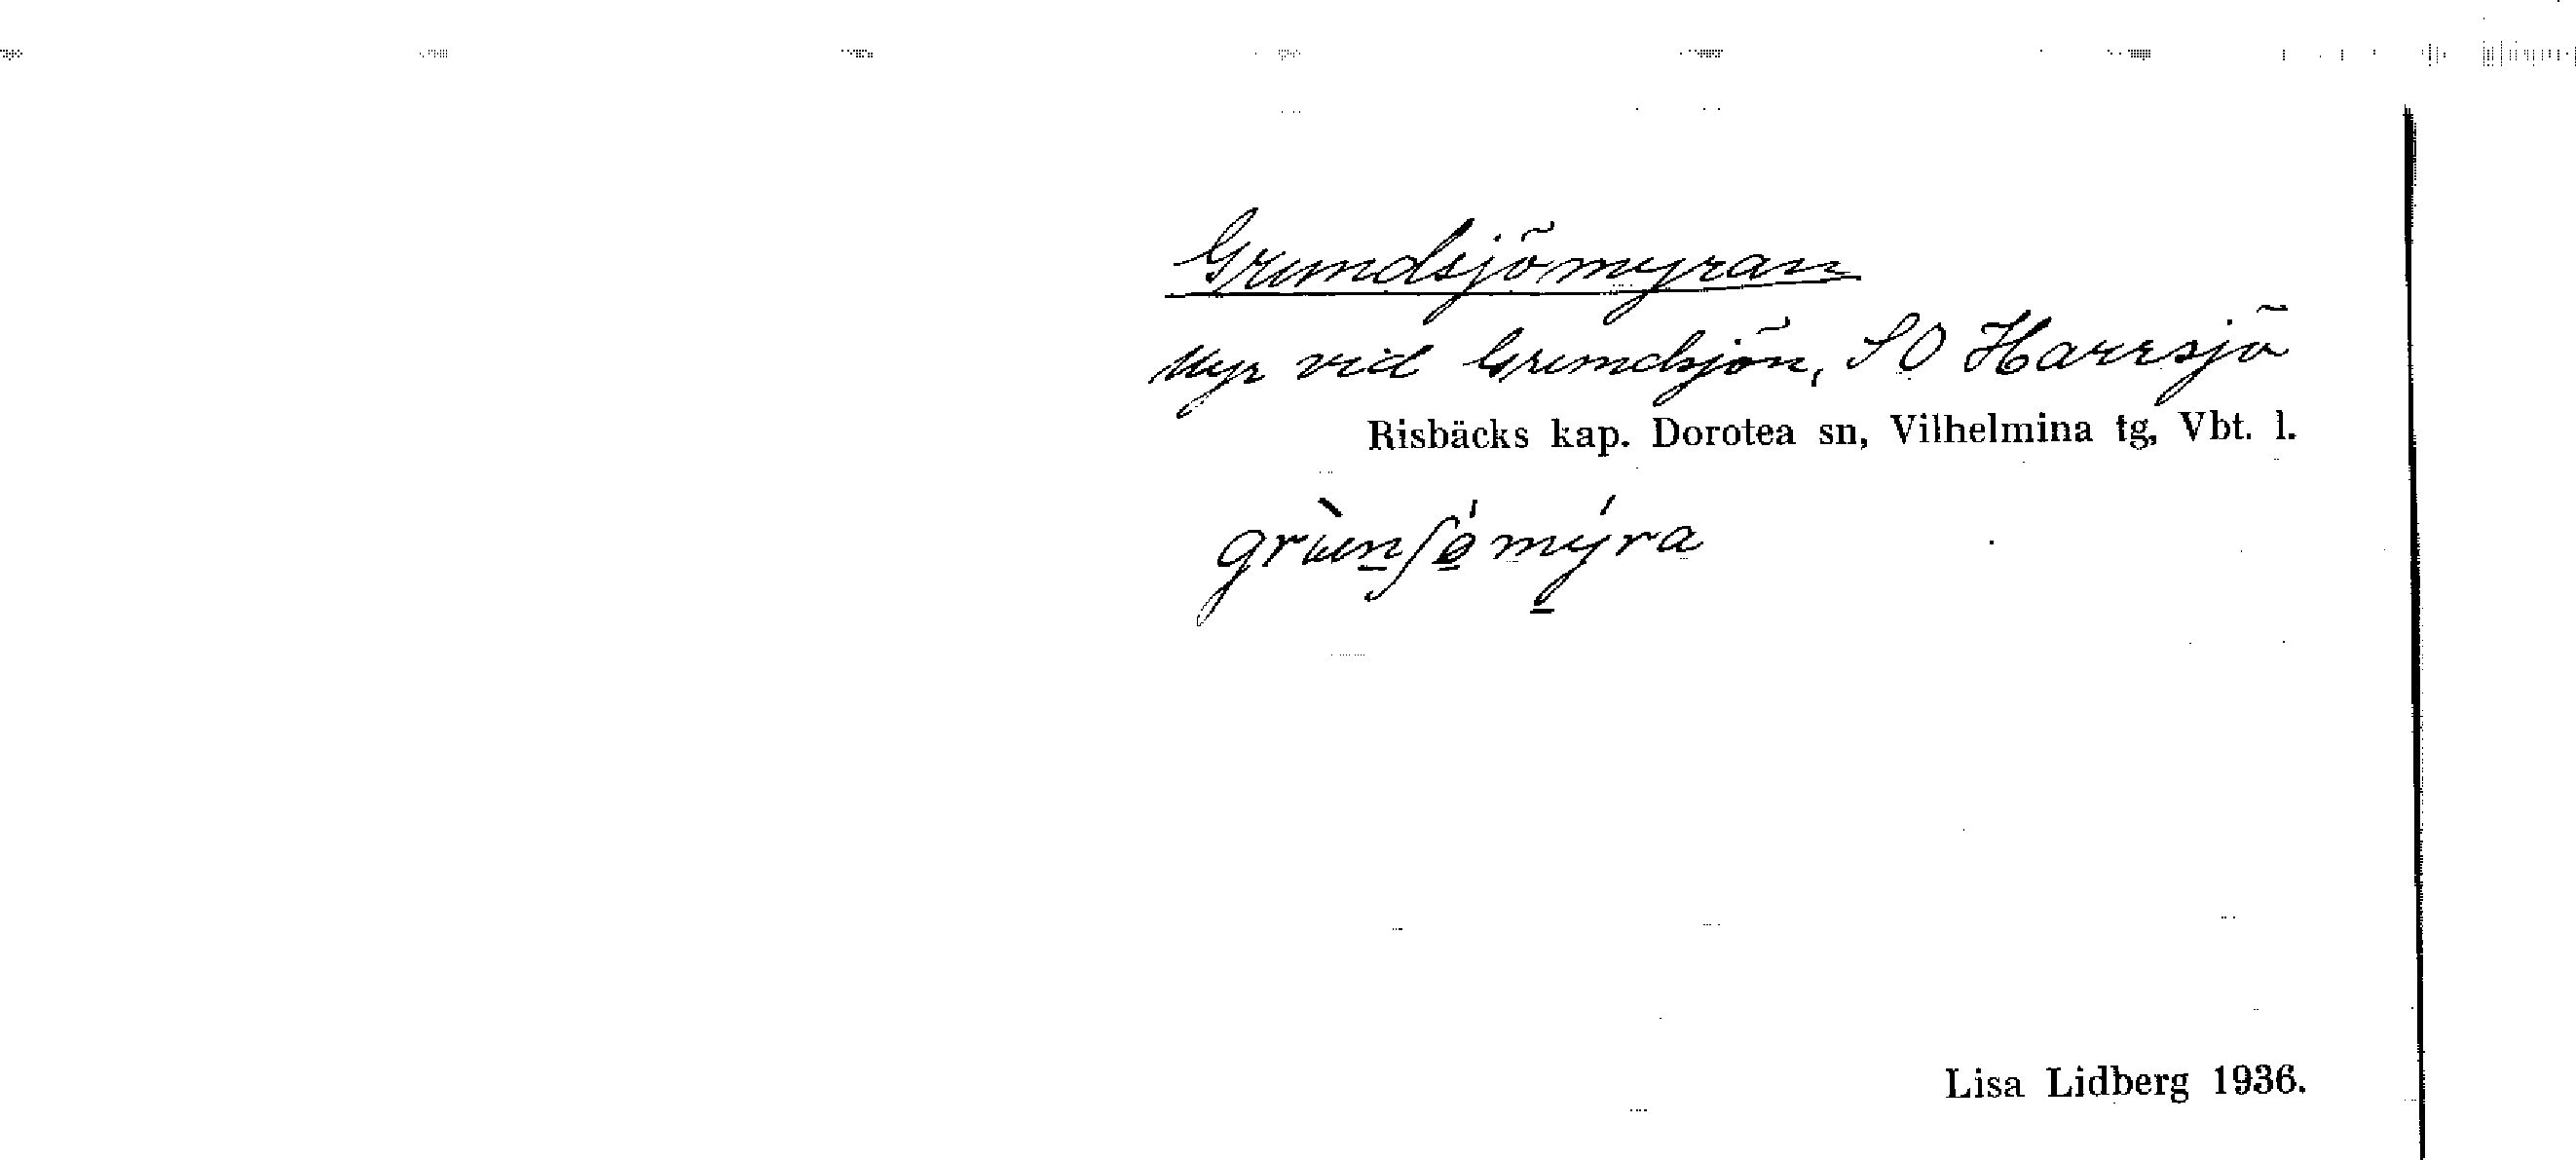 Grundsjömyran
Myr vid Grundsjön, SO Harrsjö
Risbäcks kap. Dorotea sn, Vilhelmina tg, Vbt. l.
Lisa Lidberg 1936.